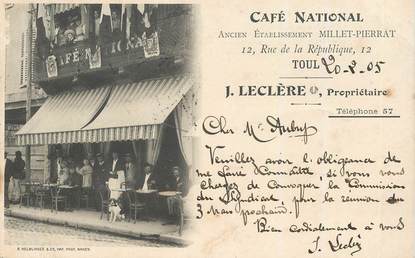 CAFÉ NATIONAL
ANCIEN ÉTABLISSEMENT MILLET-PIERRAT
12, Rue de la République, 12
TOUL 20-2-05
J. LECLÈRE, Propriétaire
Téléphone 57
Cher Mr Aubry
Veuillez avoir l'obligeance de
me faire connaître, si vous vous
chargez de convoquer la Commission
du Syndicat, pour la réunion du
3 Mars prochain.
Bien cordialement à vous
J. Leclère
CAFÉ NA